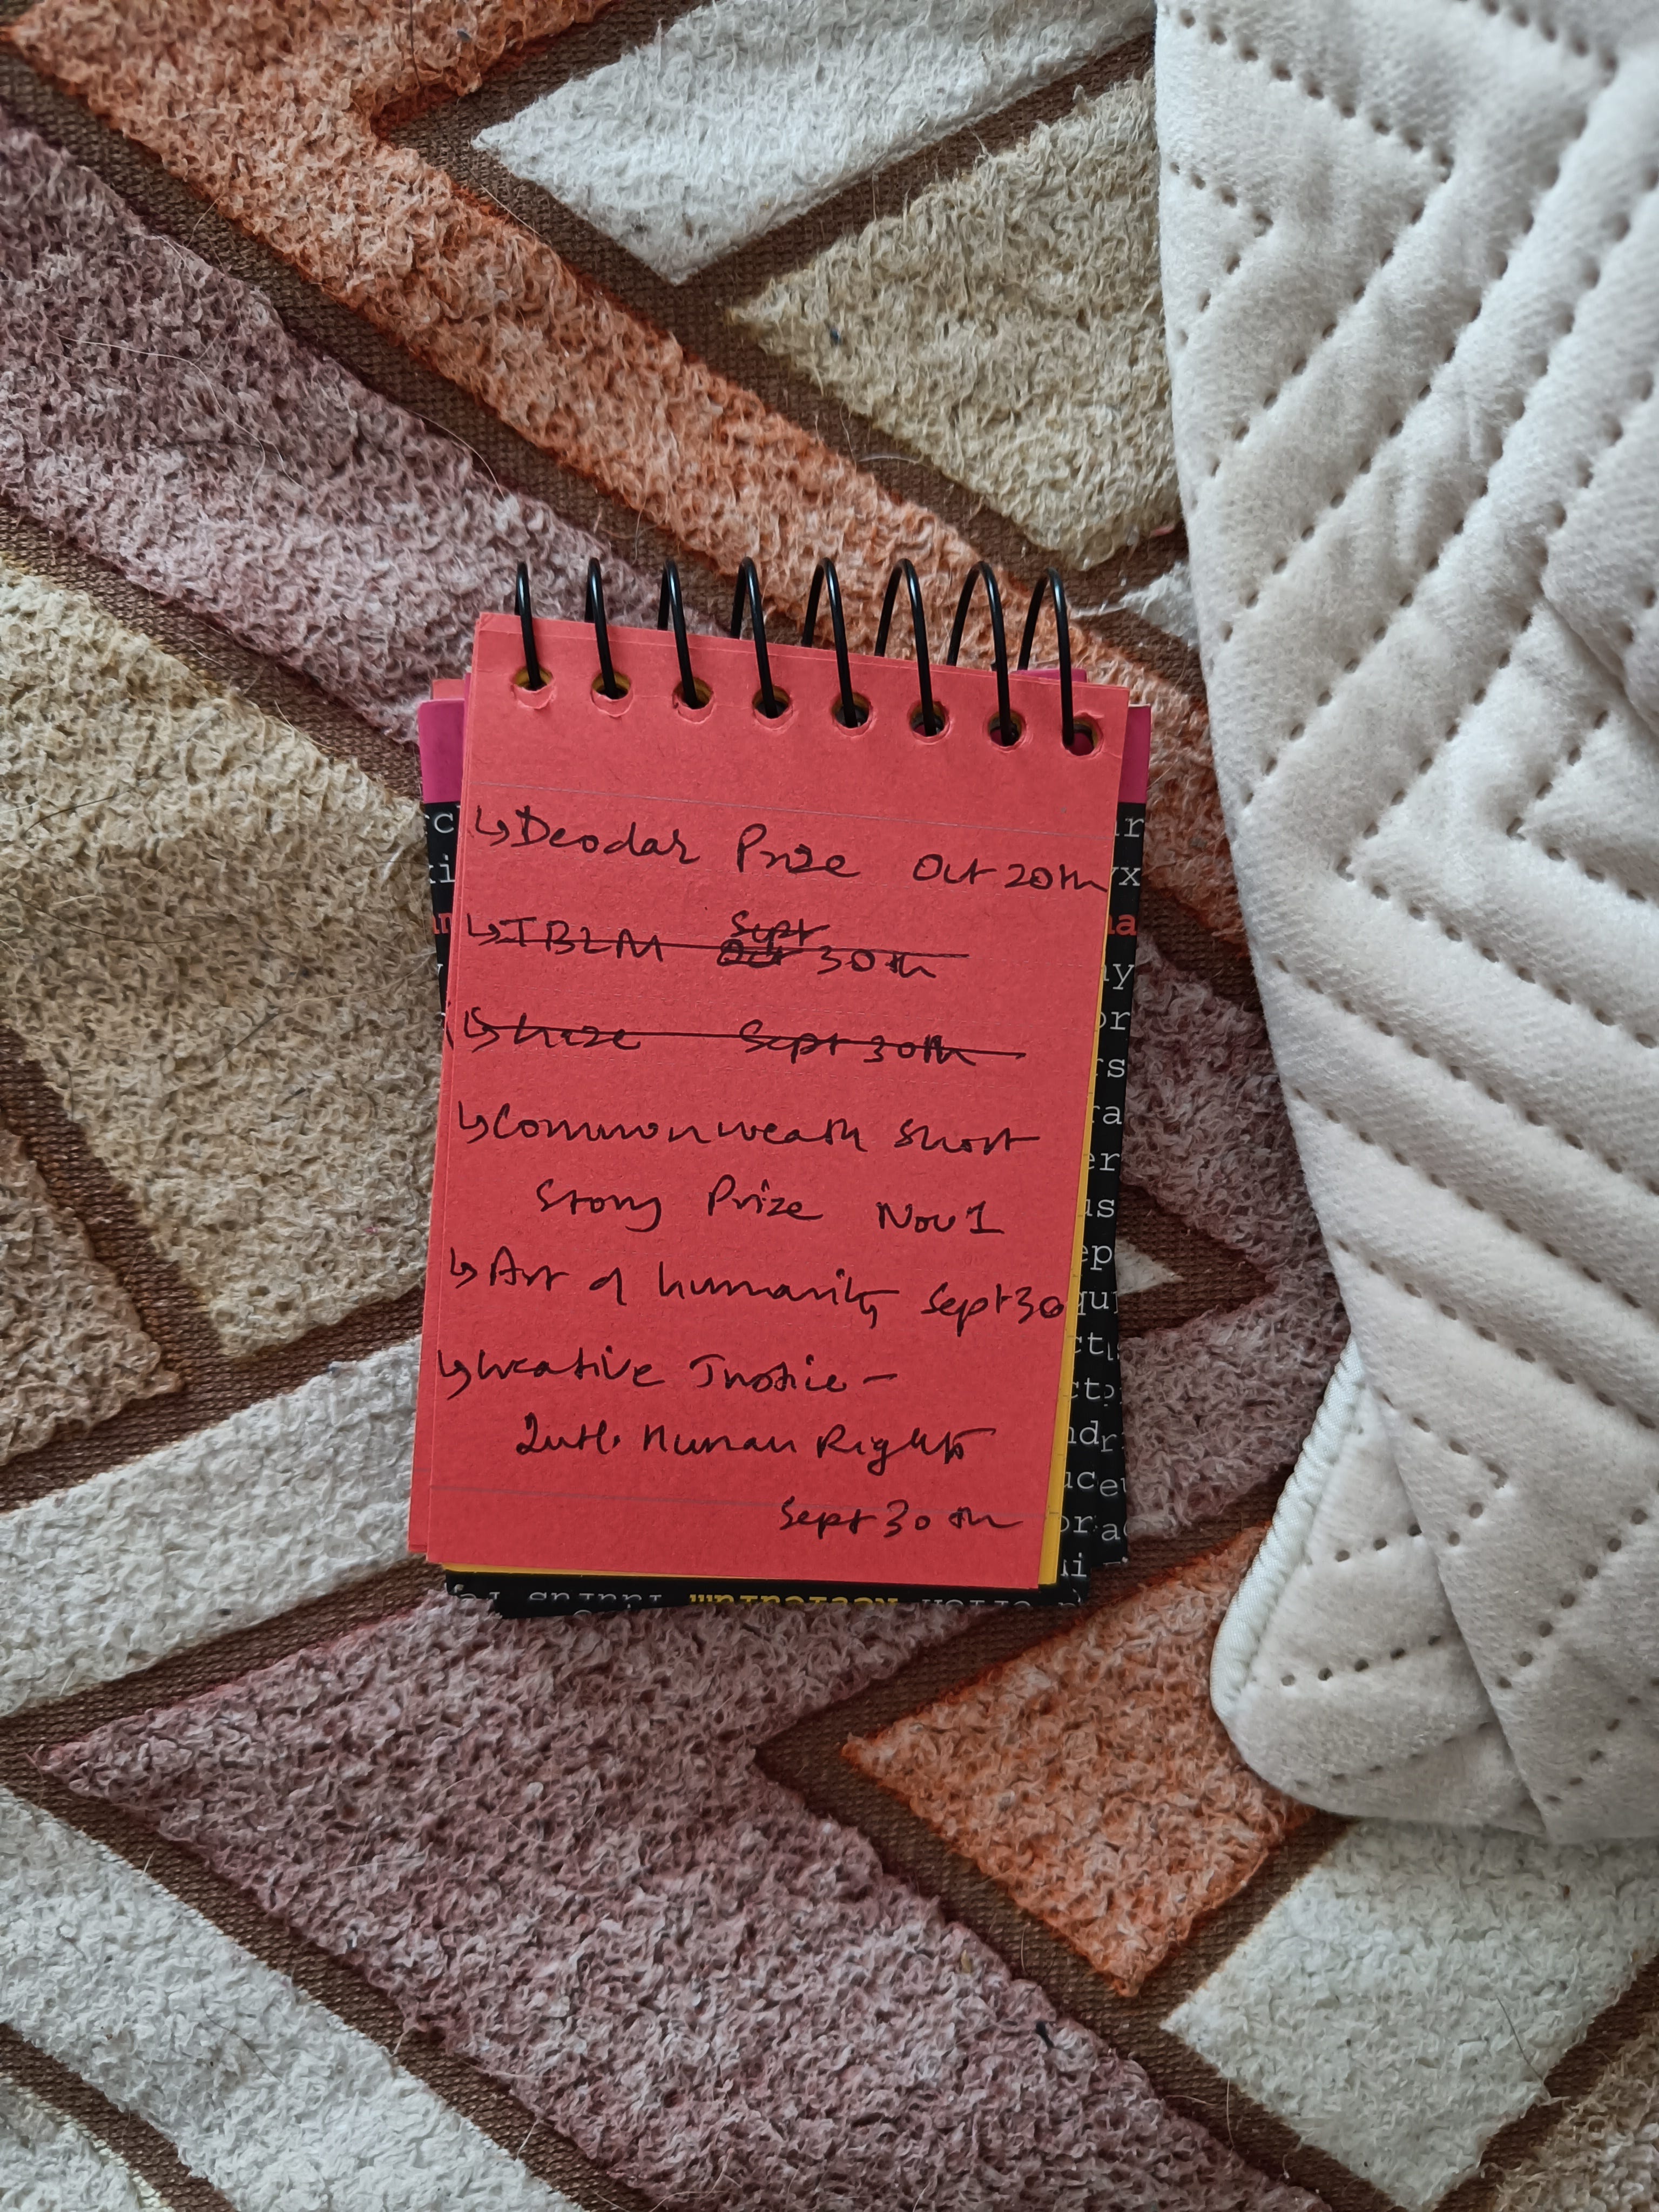 ↳Deodar Prize Oct 20th
Sept
↳IBLM Oct 30th
↳haze Sept 30th
↳Commonweath Short
Story Prize Nov 1
↳Art of humanity Sept 30
↳Creative Justice -
Intl. Human Rights
Sept 30th